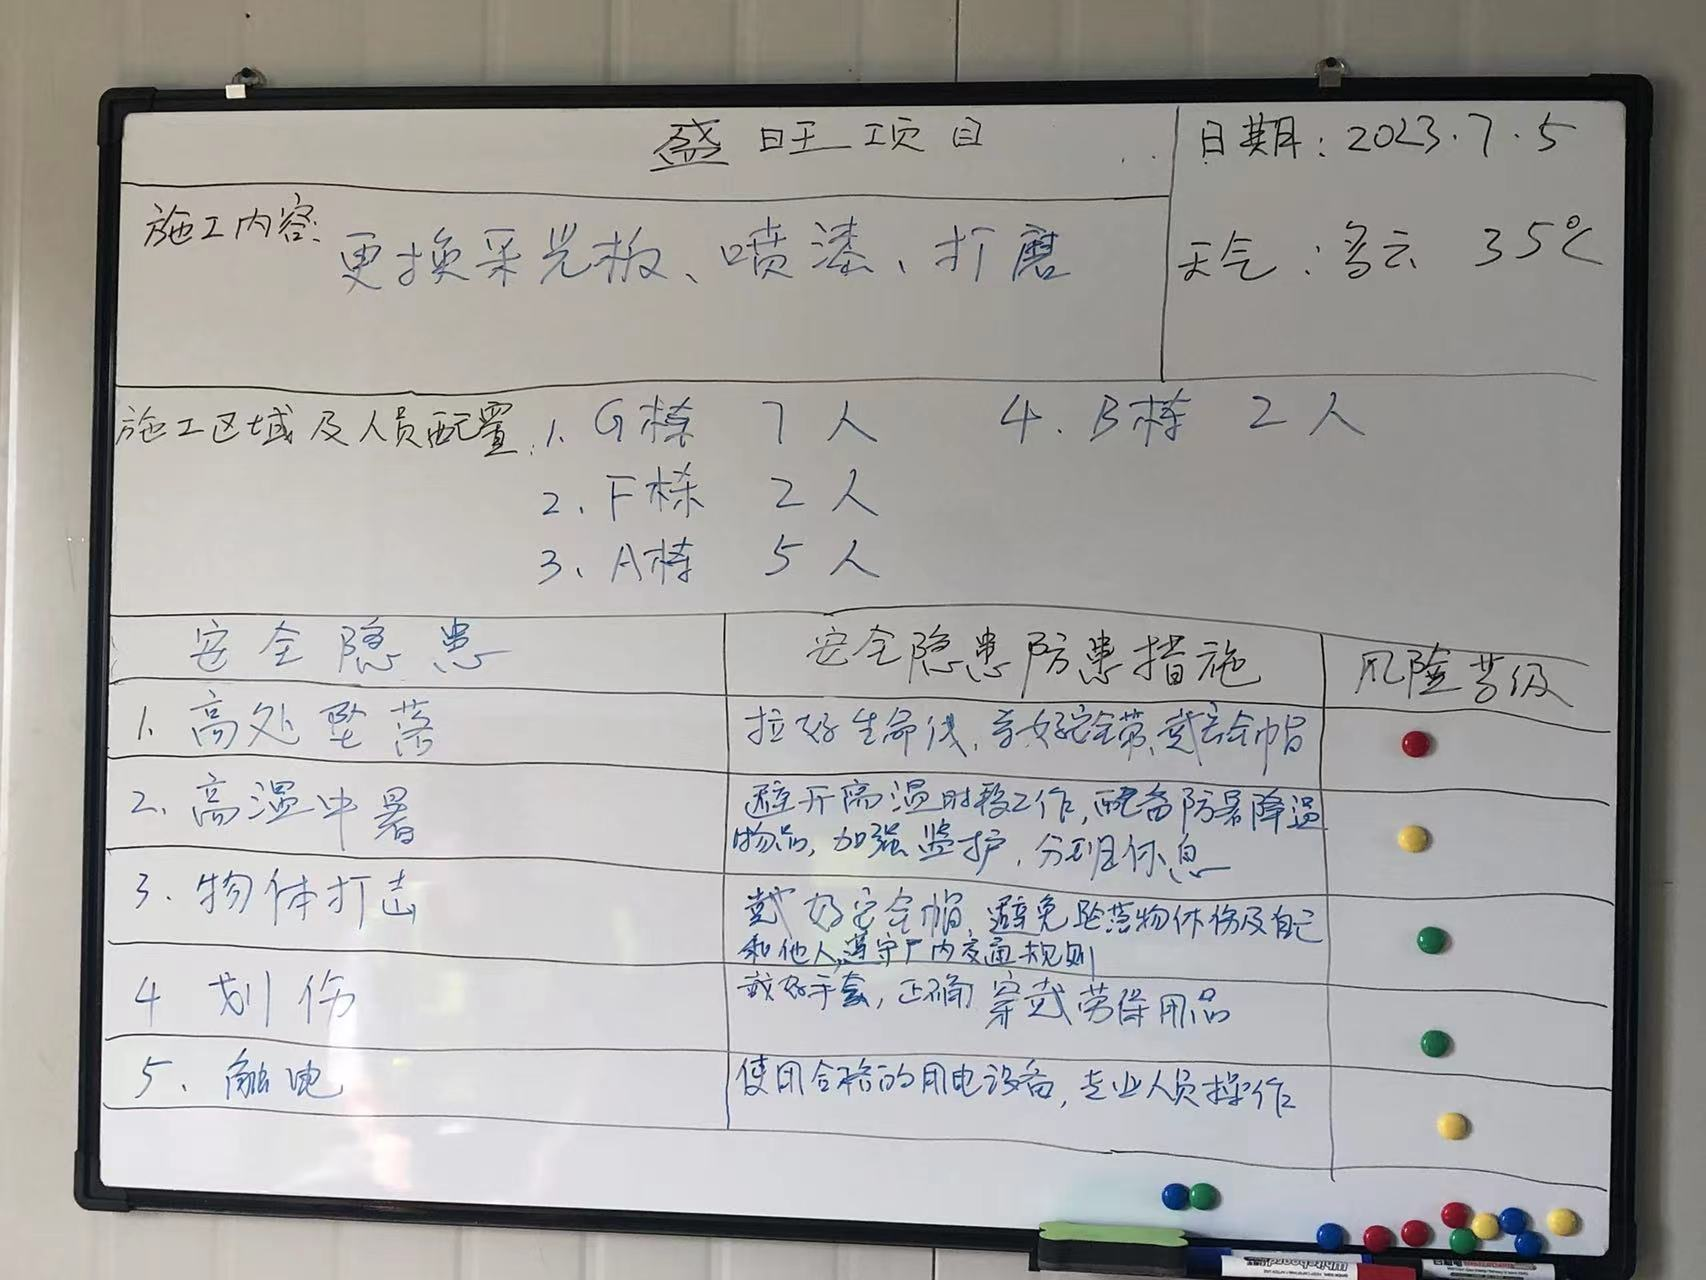 盛旺项目
日期：2023.7.5
施工内容：更换采光板、喷漆、打磨
天气：多云 35℃
施工区域及人员配置：1. G栋 7人 4. B栋 2人
2. F栋 2人
3. A栋 5人
安全隐患 安全隐患防患措施 风险等级
1. 高处坠落 拉好生命线，系好安全带，戴安全帽
2. 高温中暑 避开高温时段工作，配备防暑降温
物品，加强监护，分班休息
3. 物体打击 戴好安全帽，避免坠落物体伤及自己
和他人，遵守厂内交通规则
4 划伤 戴好手套，正确穿戴劳保用品
5. 触电 使用合格的用电设备，专业人员操作
Whiteboard